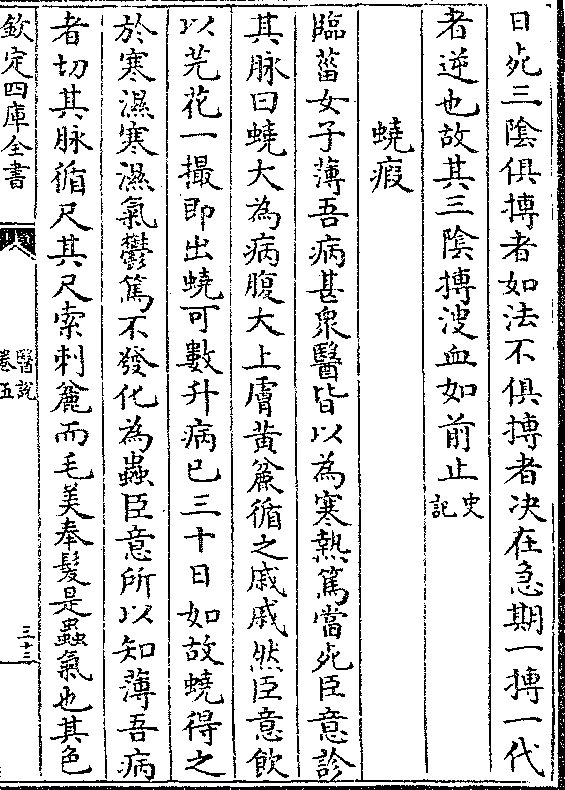 日死三隂俱搏者如法不俱搏者决在急期一搏一代
者逆也故其三隂搏溲血如前止史記
蟯瘕
臨菑女子薄吾病甚衆醫皆以為寒熱篤當死臣意診
其脉曰蟯大為病腹大上膚黄麄循之戚戚然臣意飲
以芫花一撮即出蟯可數升病已三十日如故蟯得之
於寒濕寒濕氣鬱篤不發化為蟲臣意所以知薄吾病
者切其脉循尺其尺索刺麄而毛美奉髪是蟲氣也其色
欽定四庫全書
醫說
卷五
三十三